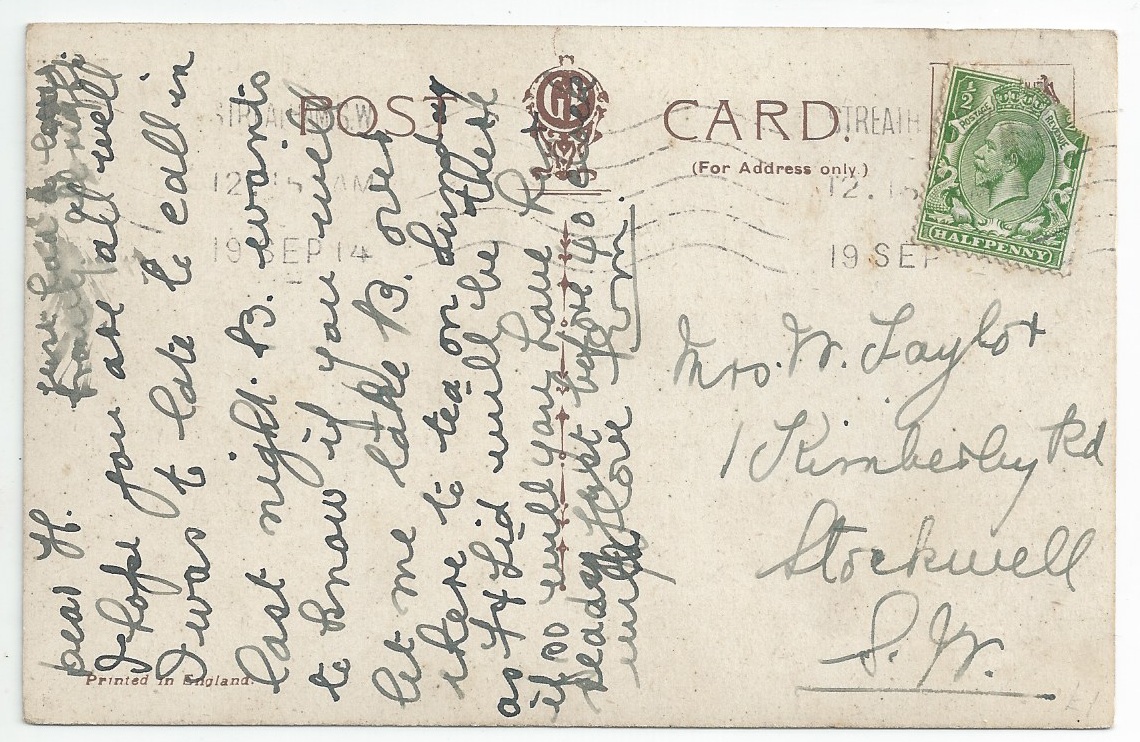 POST CARD
(For Address only.)
STREATHAM S.W
12.15 AM
19 SEP 14
STREATH
12.15
19 SEP
½
POSTAGE
REVENUE
HALFPENNY
Mrs. W. Taylor
1 Kimberley Rd
Stockwell
S. W.
Dear H.
I hope you are all well
I was to late to call in
last night. B. wants
to know if you will
let me take B. over
there to tea on Sunday
as F & Lid will be there
if so will you have Pet
ready just before 4 o clock
with love from
just had
Printed in England.